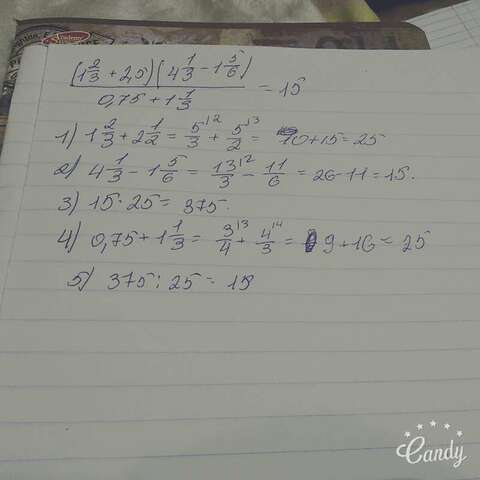 Academy
(1 2/3 + 2,5)(4 1/3 - 1 5/6)
0,75 + 1 1/3
= 15
1) 1 2/3 + 2 1/2 = 5/3 12 + 5/2 13 = 10 + 15 = 25
2) 4 1/3 - 1 5/6 = 13/3 12 - 11/6 = 26 - 11 = 15.
3) 15 · 25 = 375.
4) 0,75 + 1 1/3 = 3/4 13 + 4/3 14 = 9 + 16 = 25
5) 375 : 25 = 15
Candy